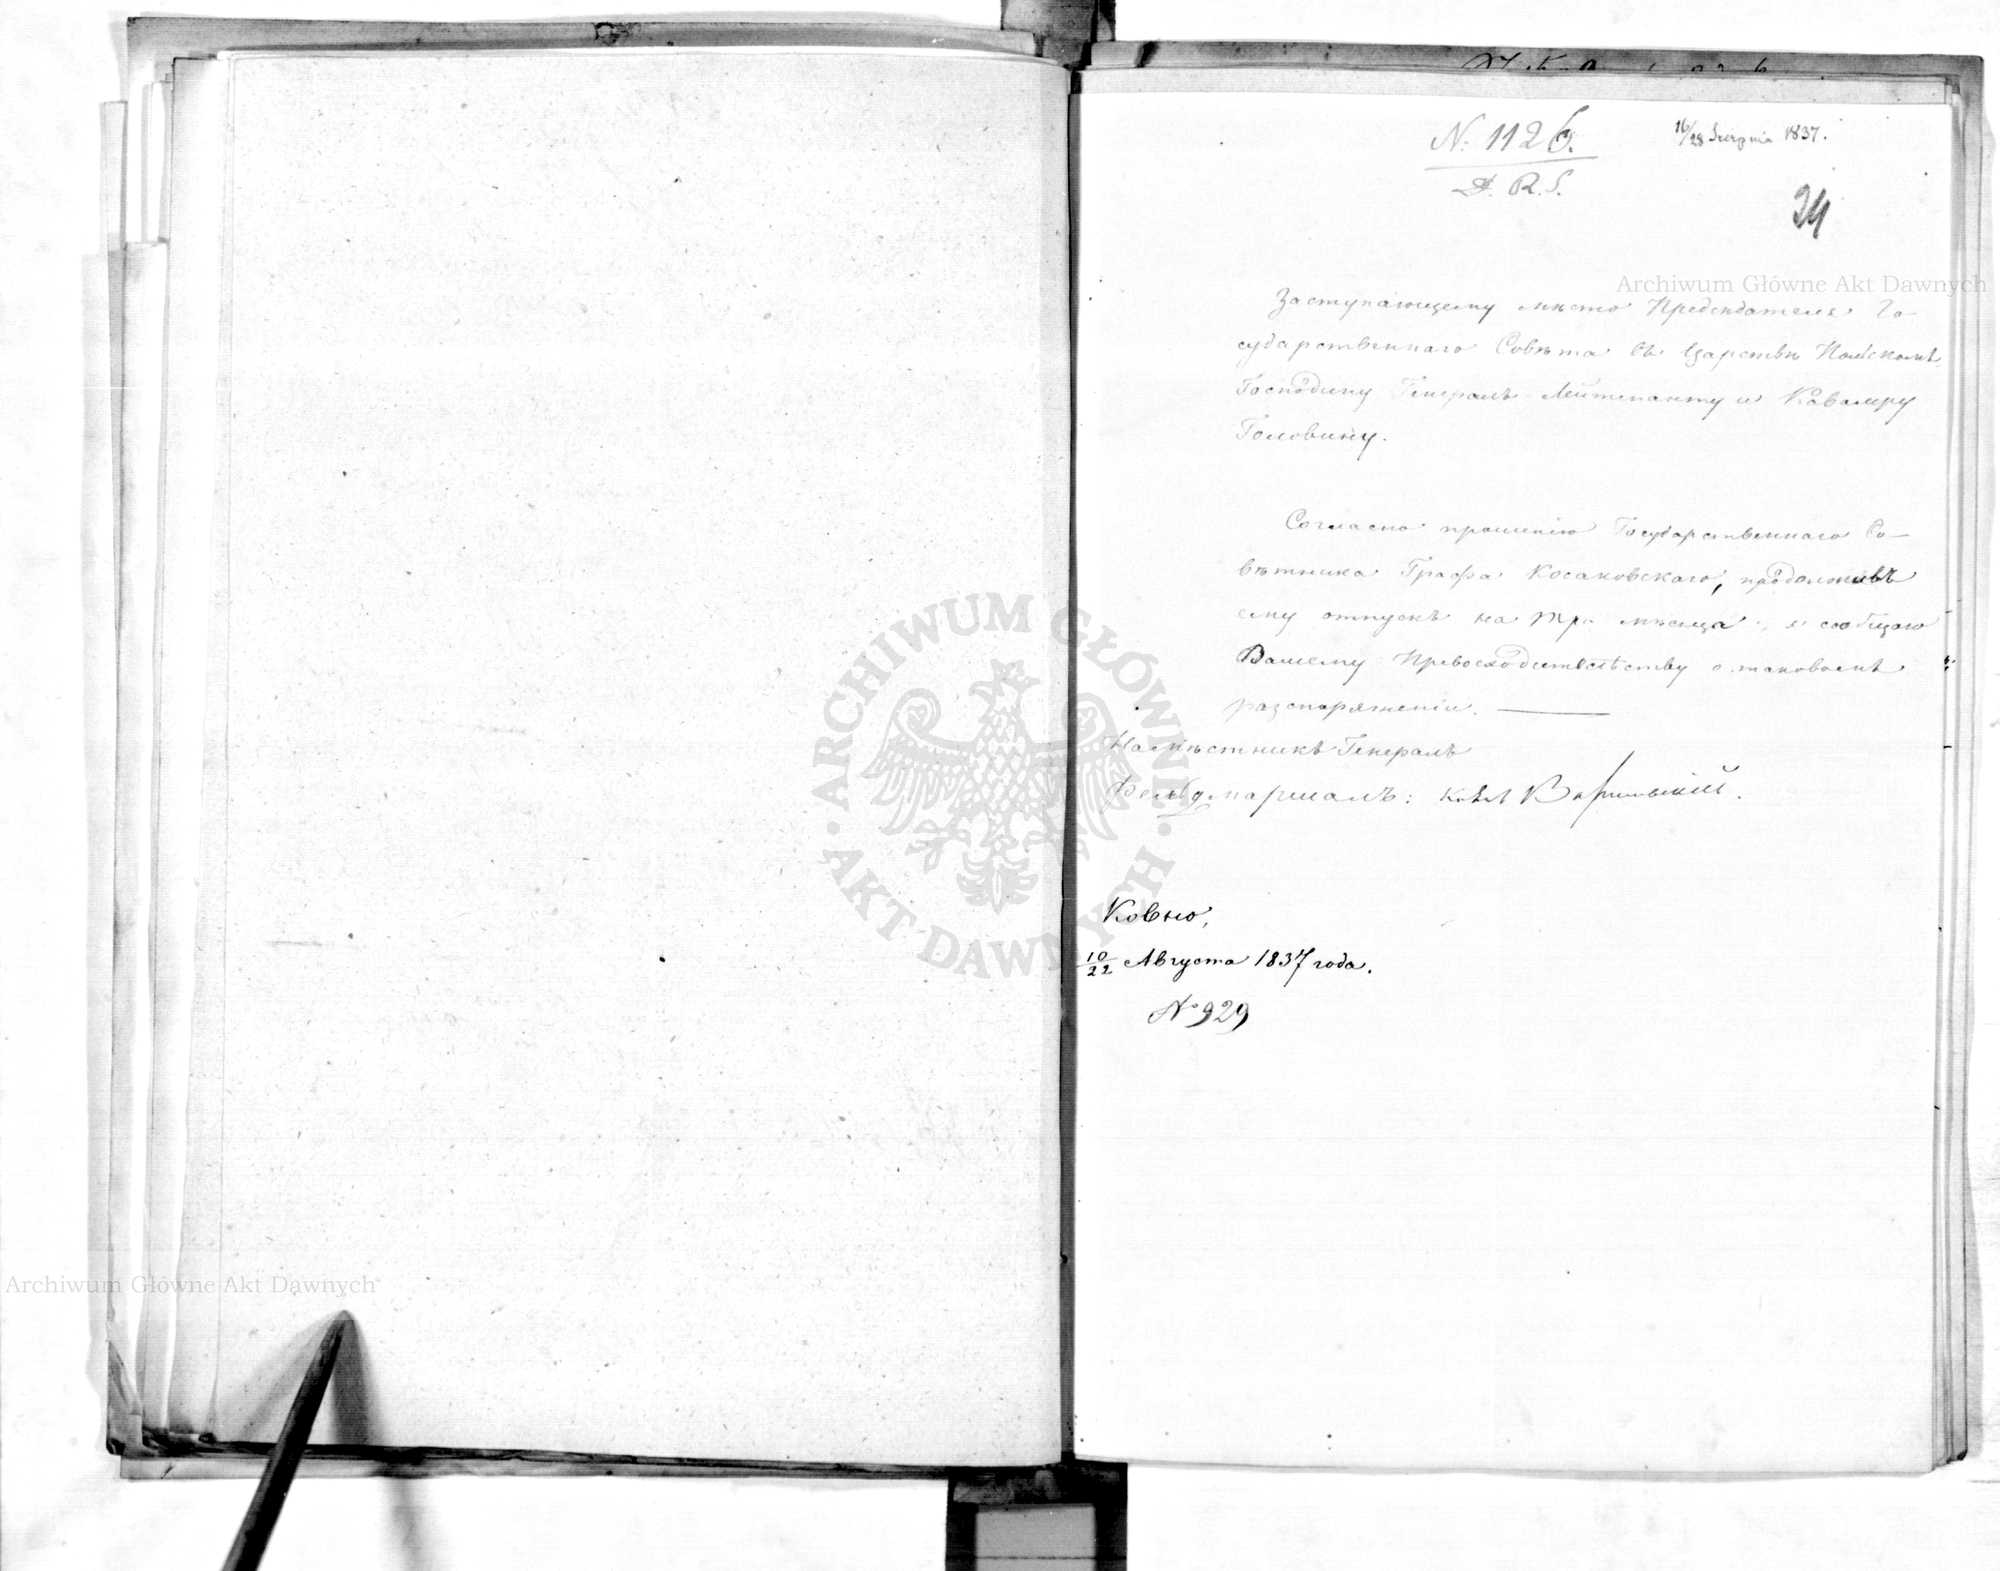 N. 1126.
D. R. S.
16/28 Sierpnia 1837.
24
Archiwum Główne Akt Dawnych
Заступающему мѣсто Предсѣдателя Го-
сударственнаго Совѣта въ Царствѣ Польскомъ,
Господину Генералъ-Лейтенанту и Кавалеру
Головину.
Согласно прошенію Государственнаго Со-
вѣтника Графа Косаковскаго, продолживъ
ему отпускъ на три мѣсяца, я сообщаю
Вашему Превосходительству о таковомъ
распоряженіи.
Намѣстникъ Генералъ
Фельдмаршалъ: Князь Варшавскій.
Ковно,
10/22 Августа 1837 года.
№ 929
ARCHIWUM GŁÓWNE AKT DAWNYCH
Archiwum Główne Akt Dawnych